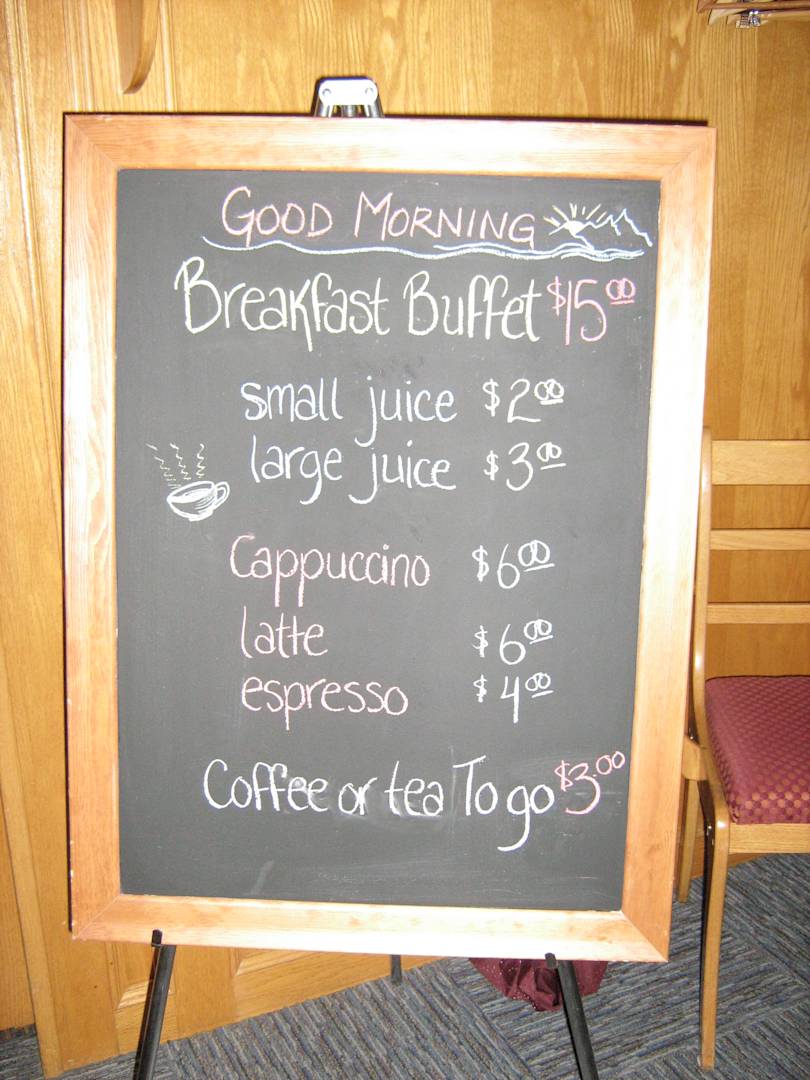 GOOD MORNING
Breakfast Buffet $15.00
small juice $2.00
large juice $3.00
Cappuccino $6.00
latte $6.00
espresso $4.00
Coffee or tea To go $3.00